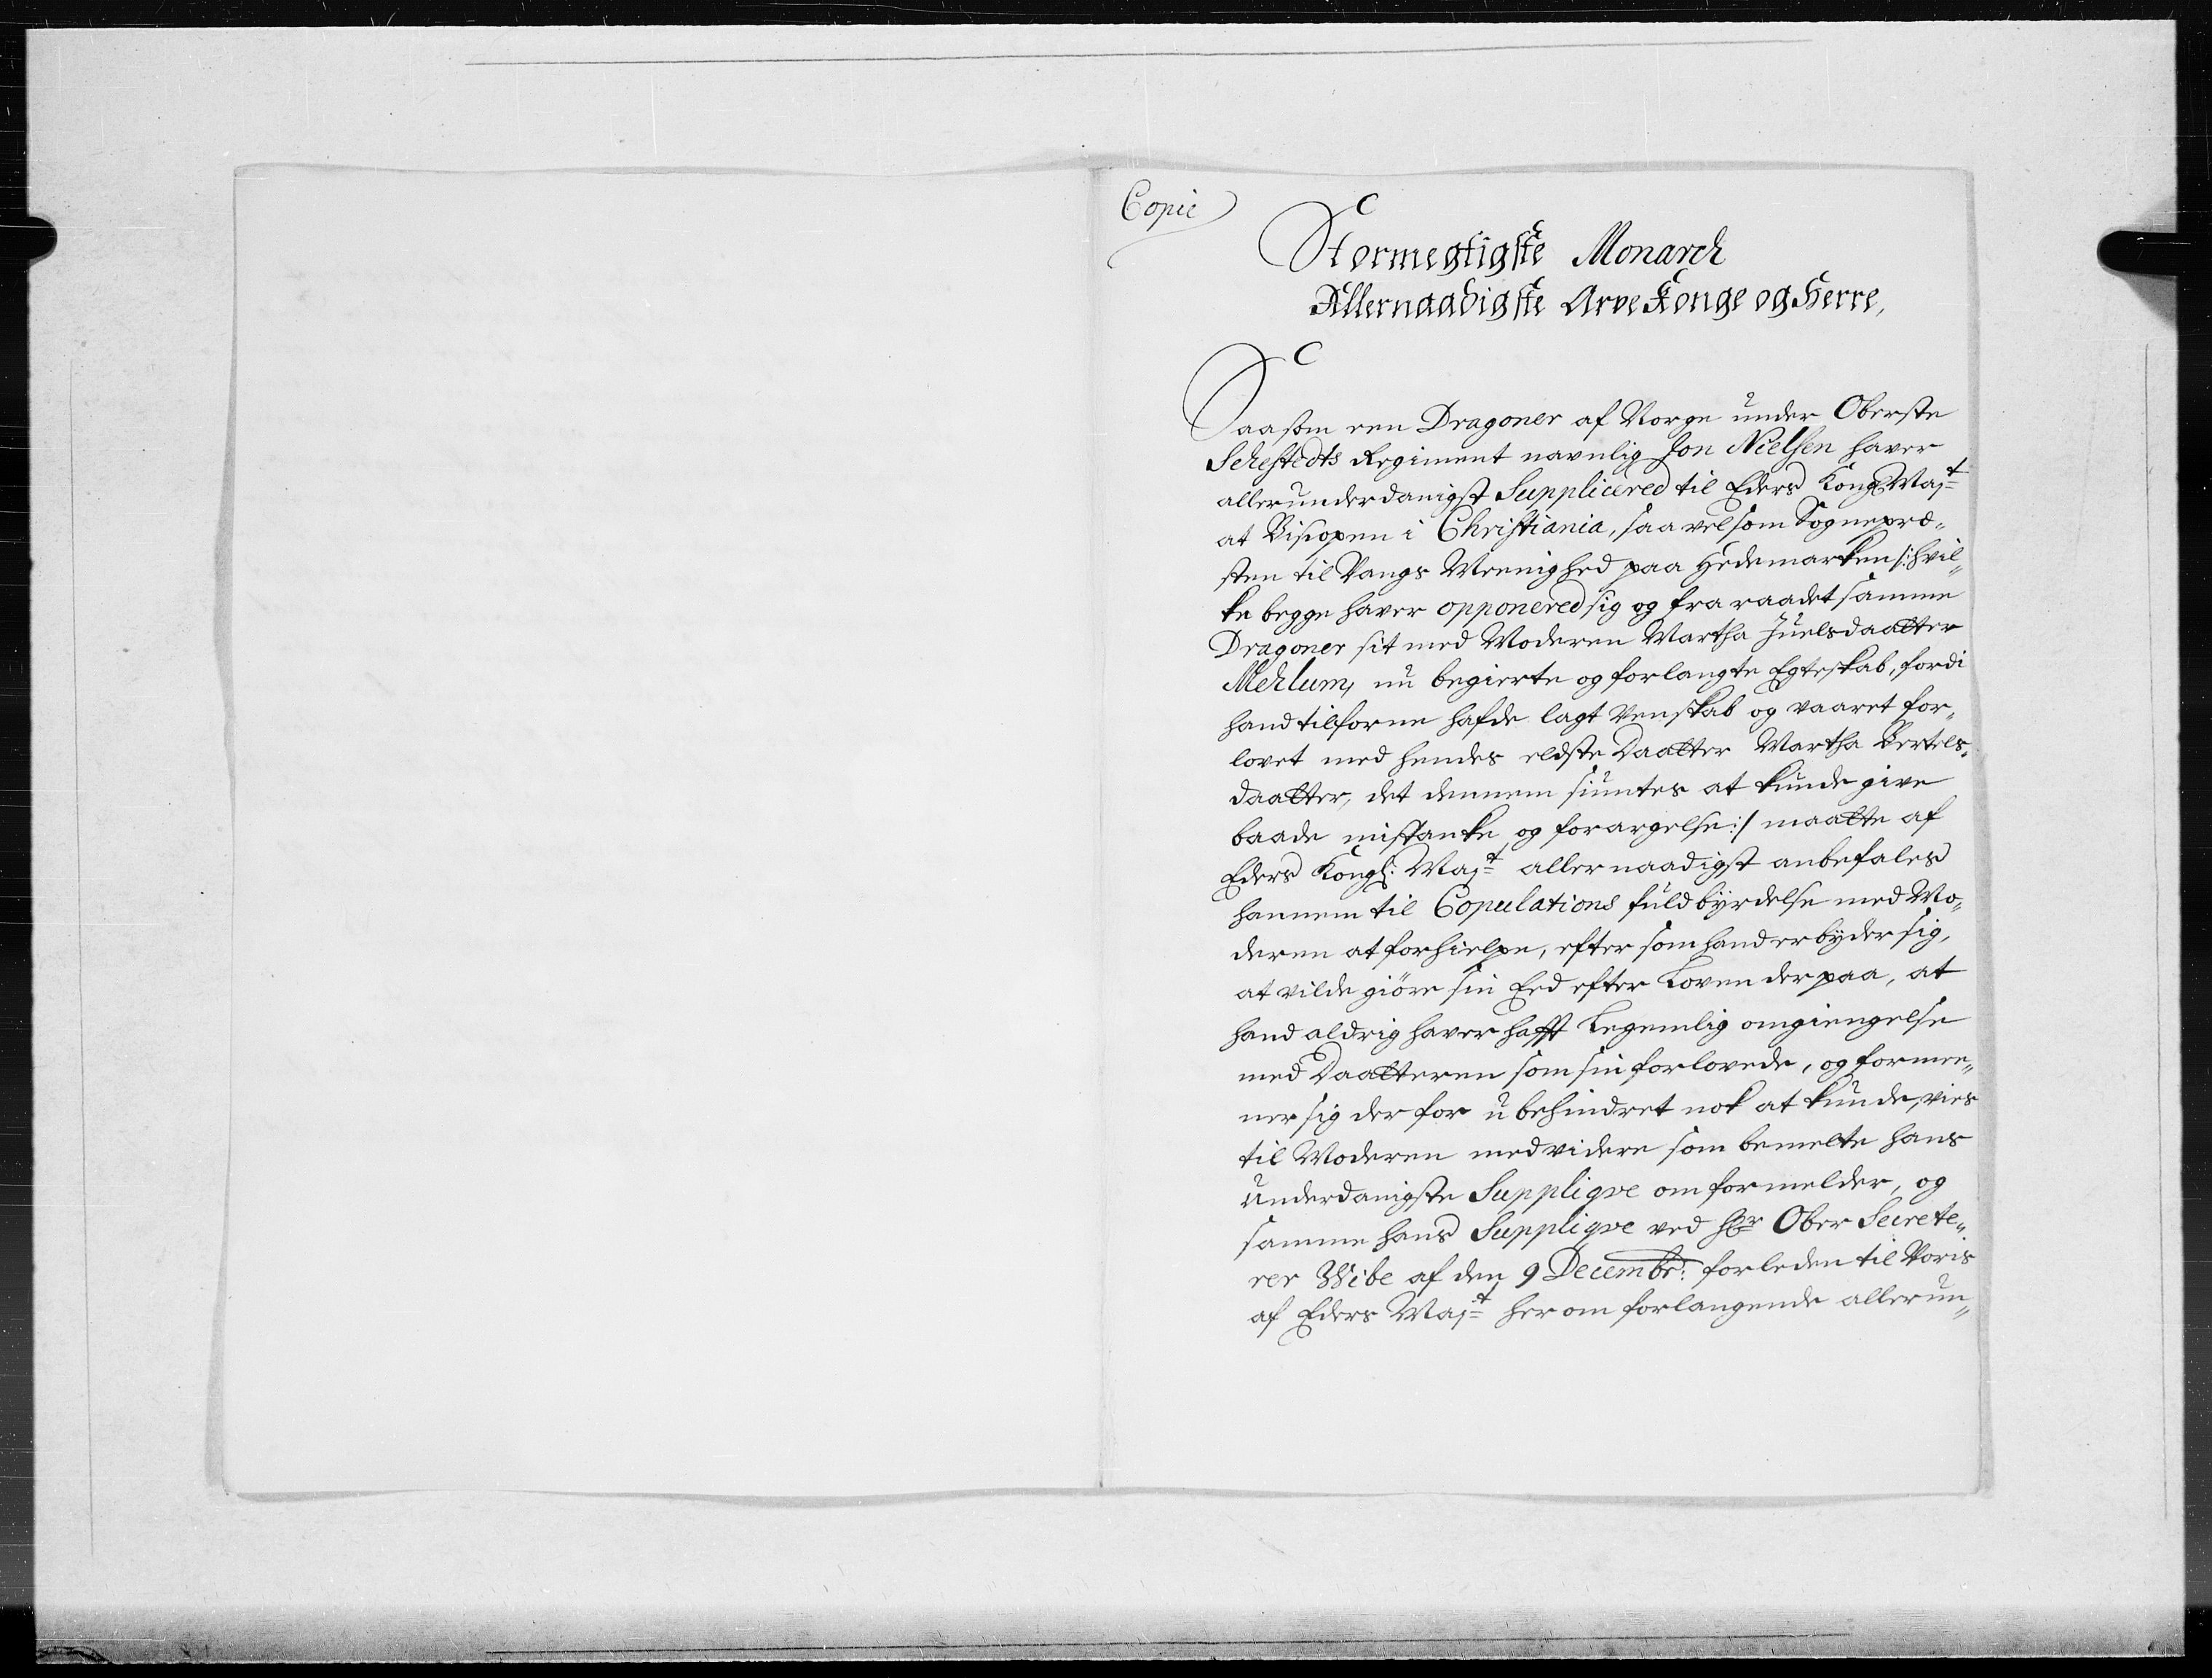 Copie
Stormegtigste Monarch
Allernaadigste Arve Konge og Herre,
Saasom een Dragoner af Norge under Oberste
Sehestedts Regiment navnlig Jon Nielsen haver
allerunderdanigst Supplicered til Eders Kongl Maj:t
at Biscopen i Christiania, saa velsom Sognepræ„
sten til Vangs Meenighed paa Hedemarken /: hvil„
ke begge haver opponered sig og fra raadet samme
Dragoner sit med Moderen Martha Juelsdaatter
Mehlum, nu begierte og forlangte Egteskab, fordi
hand tilforne hafde lagt Venskab og vaaret for„
lovet med hendes eldste Daatter Martha Bertels„
daatter, det dennem siuntes at kunde give
baade mistanke og forargelse :/ maatte af
Eders Kongl: Maj:t allernaadigst anbefales
hannem til Copulations fuldbyrdelse med Mo„
deren at forhielpe, efter som hand erbyder sig,
at vilde giöre sin Eed efter Loven derpaa, at
hand aldrig haver hafft Legemlig omgiengelse
med Daatteren som sin forlovede, og formee„
ner sig der for u behindret nok at kunde vies
til Moderen med videre som bemelte hans
underdanigste Suppliqve om formelder, og
samme hans Suppliqve ved Hr Ober Secrete„
rer Wibe af den 9 Decembr: forleden til Voris
af Eders Maj:t her om forlangende allerun„